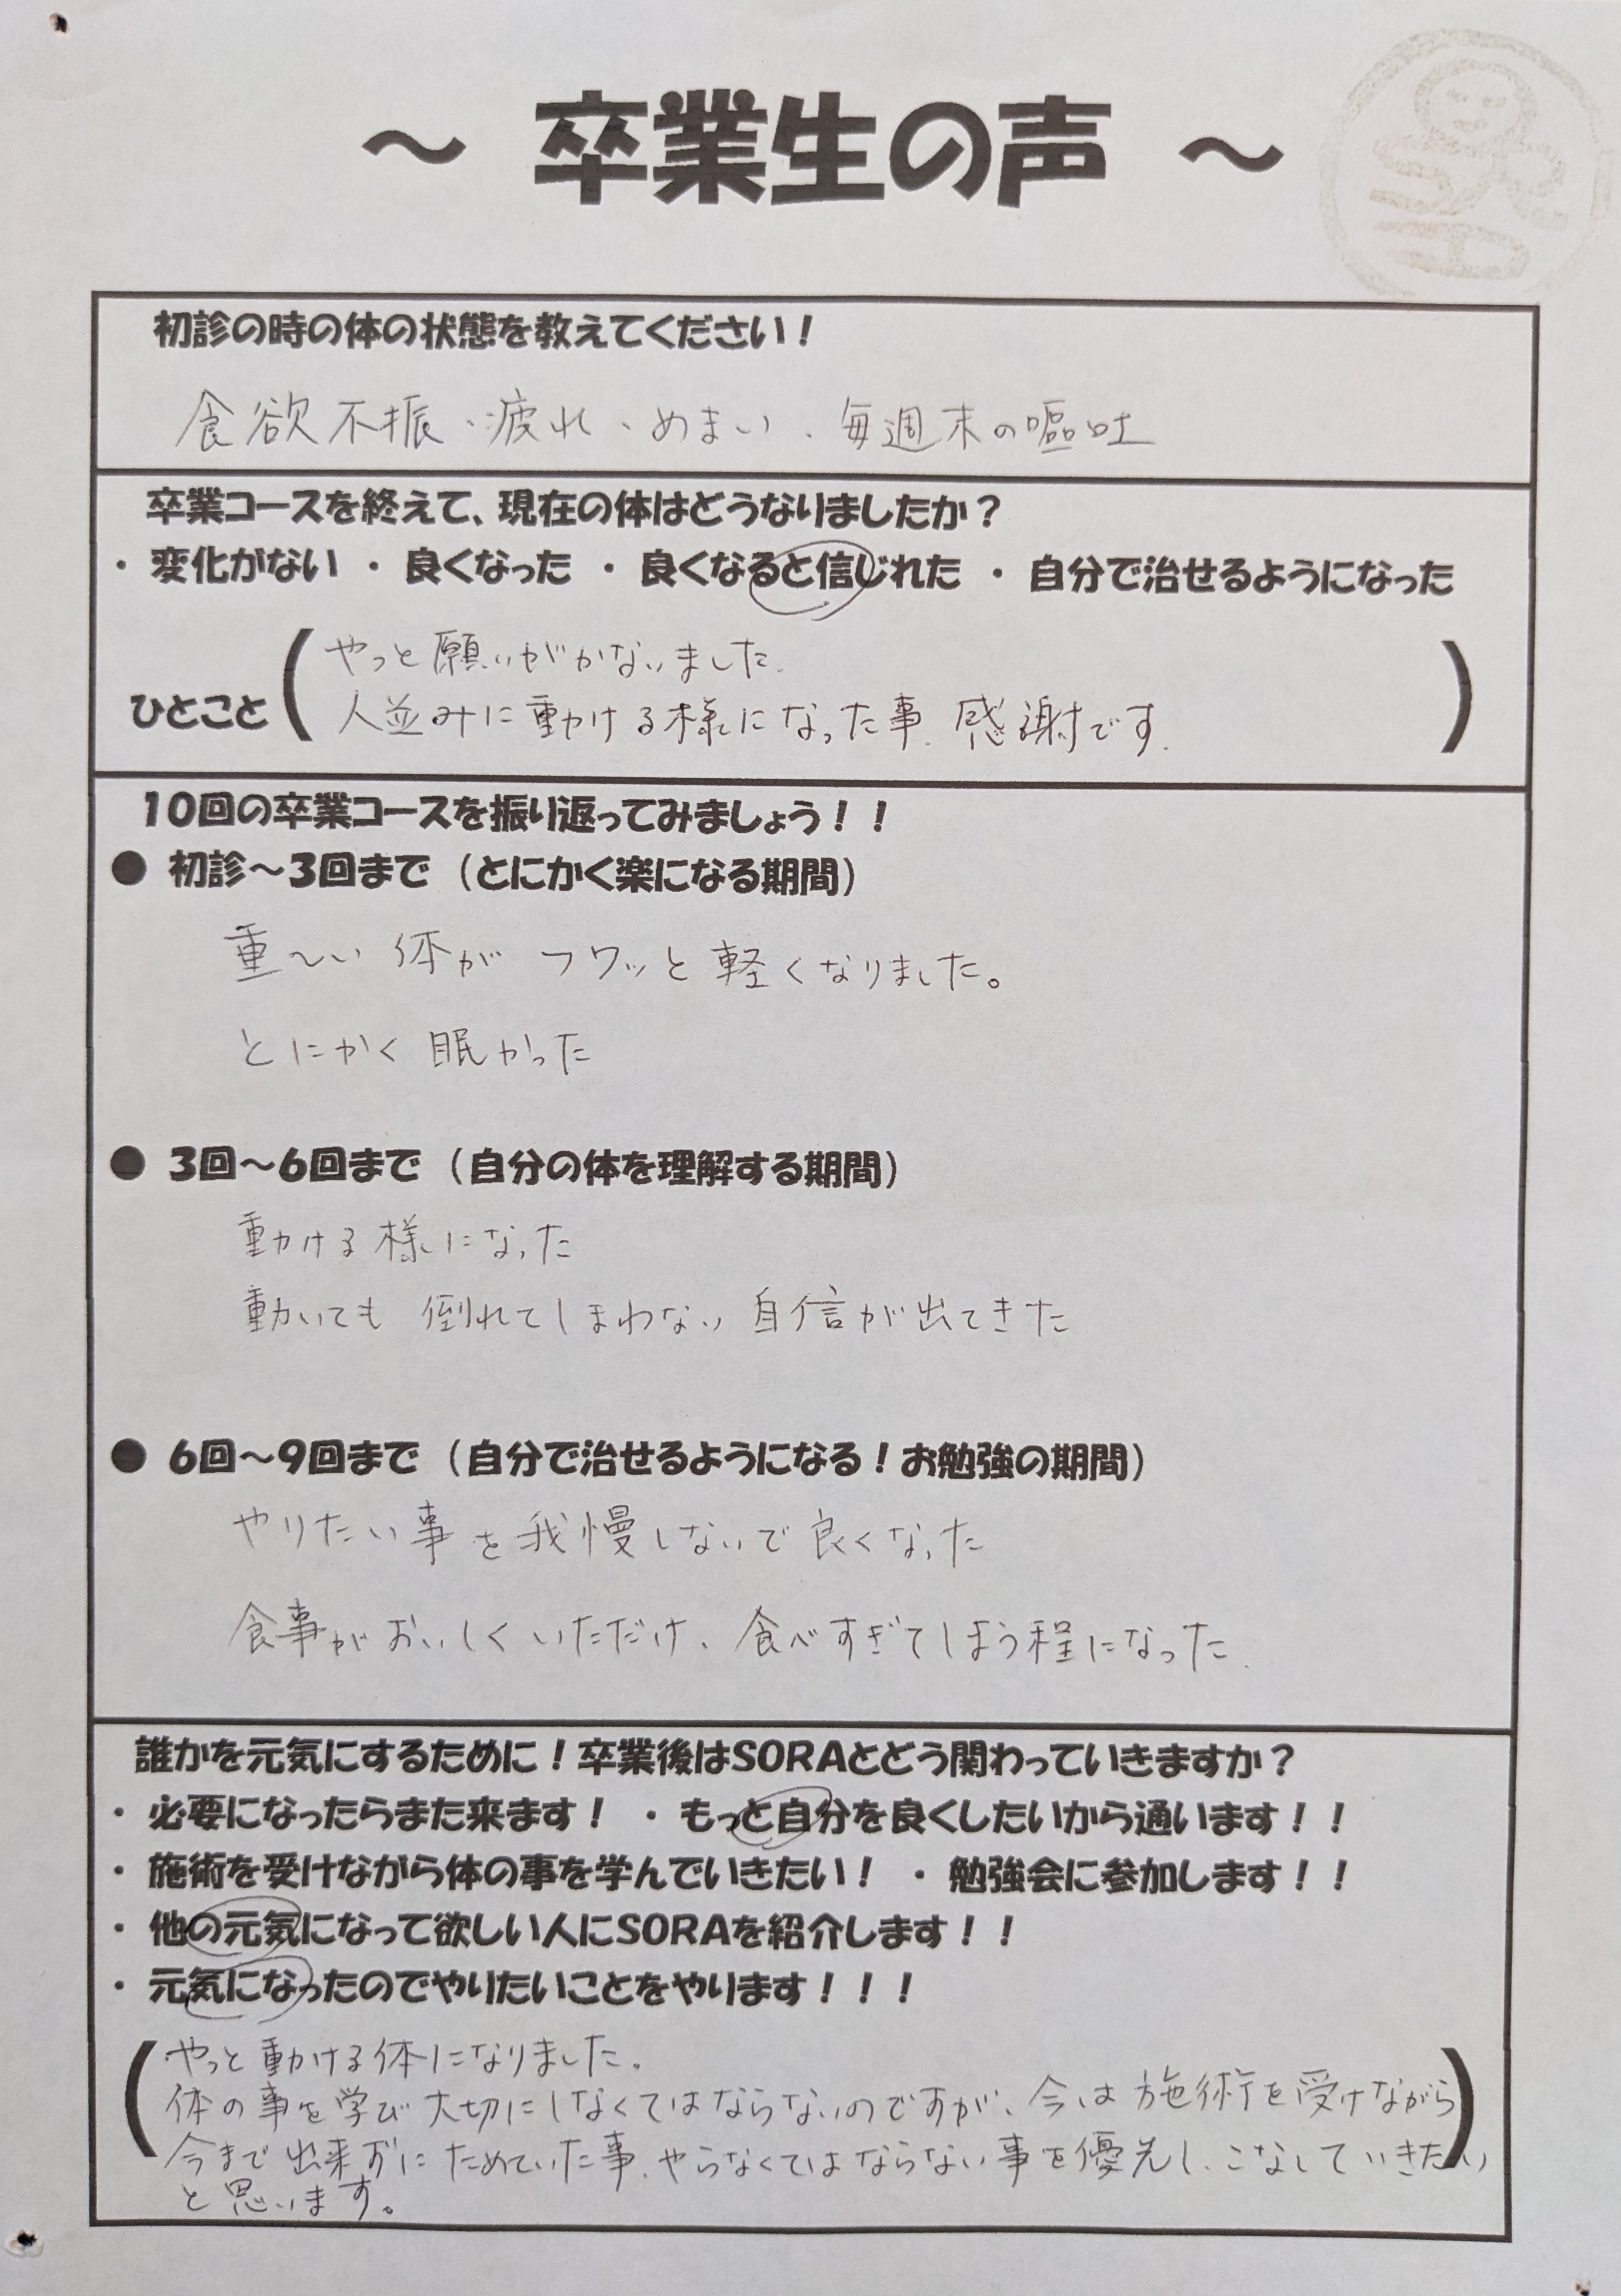 ～ 卒業生の声 ～
初診の時の体の状態を教えてください！
食欲不振、疲れ、めまい、毎週末の嘔吐
卒業コースを終えて、現在の体はどうなりましたか？
・ 変化がない ・ 良くなった ・ 良くなると信じれた ・ 自分で治せるようになった
やっと願いがかないました.
ひとこと（人並みに動ける様になった事、感謝です.）
10回の卒業コースを振り返ってみましょう！！
● 初診～3回まで（とにかく楽になる期間）
重～い 体が フワッと 軽くなりました。
とにかく 眠かった
● 3回～6回まで（自分の体を理解する期間）
動ける様になった
動いても 倒れてしまわない 自信が出てきた
● 6回～9回まで（自分で治せるようになる！お勉強の期間）
やりたい事を我慢しないで良くなった
食事がおいしくいただけ、食べすぎてしまう程になった.
誰かを元気にするために！卒業後はSORAとどう関わっていきますか？
・ 必要になったらまた来ます！ ・ もっと自分を良くしたいから通います！！
・ 施術を受けながら体の事を学んでいきたい！ ・ 勉強会に参加します！！
・ 他の元気になって欲しい人にSORAを紹介します！！
・ 元気になったのでやりたいことをやります！！！
（やっと動ける体になりました。
体の事を学び大切にしなくてはならないのですが、今は施術を受けながら）
今まで出来ずにためていた事、やらなくてはならない事を優先し、こなしていきたい
と思います。